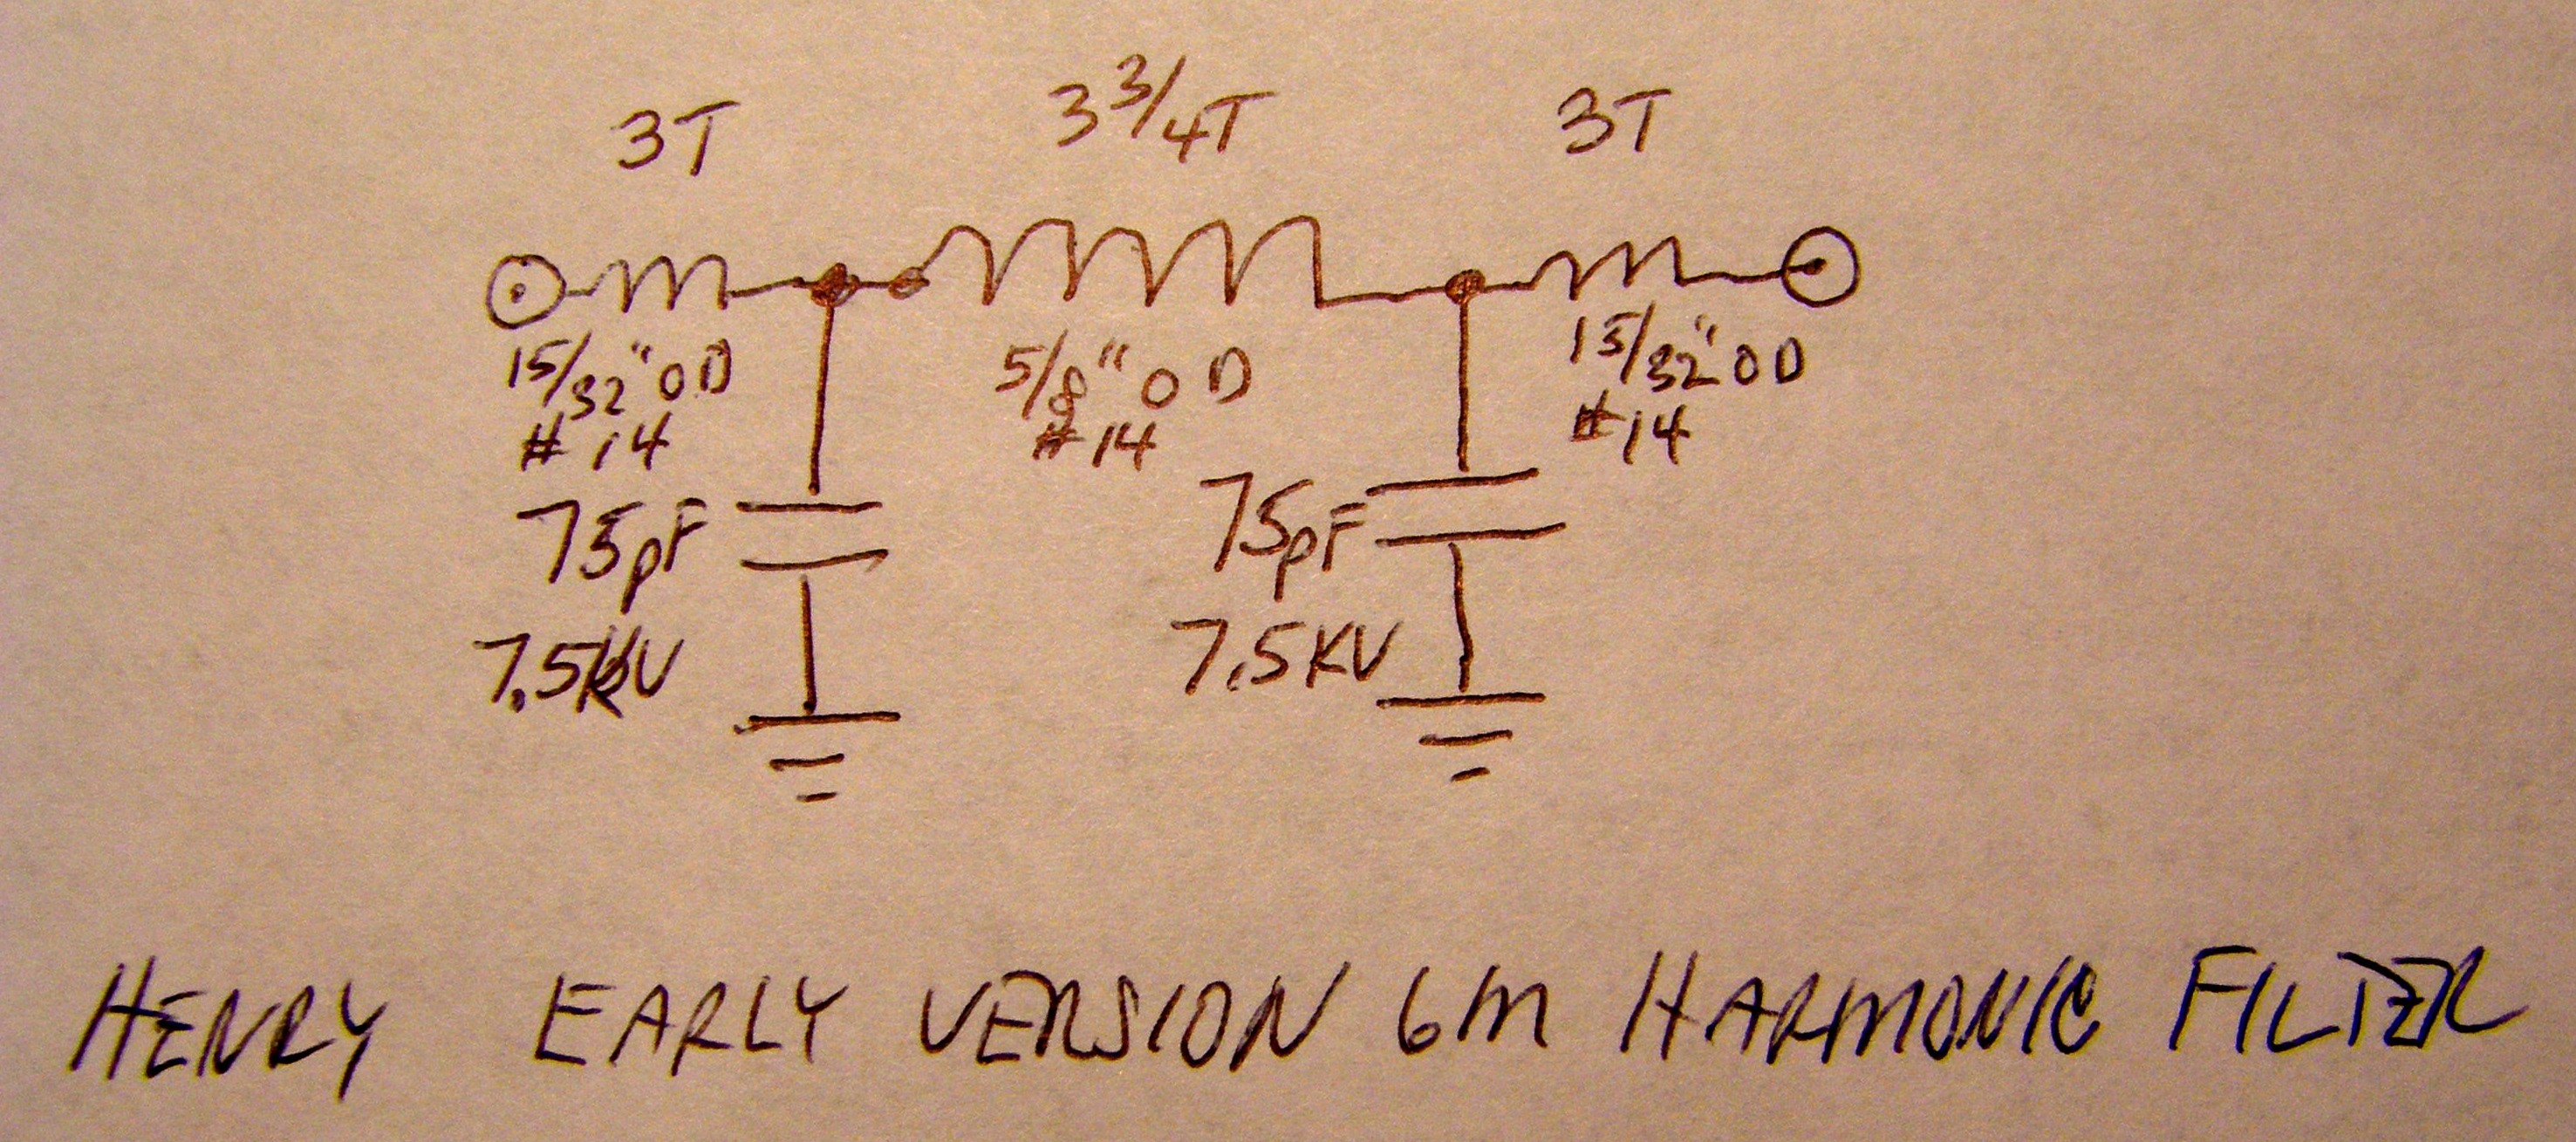 3T
3 3/4T
3T
15/32" OD
# 14
5/8" OD
# 14
15/32" OD
# 14
75pF
7.5kV
75pF
7.5KV
HENRY EARLY VERSION 6M HARMONIC FILTER